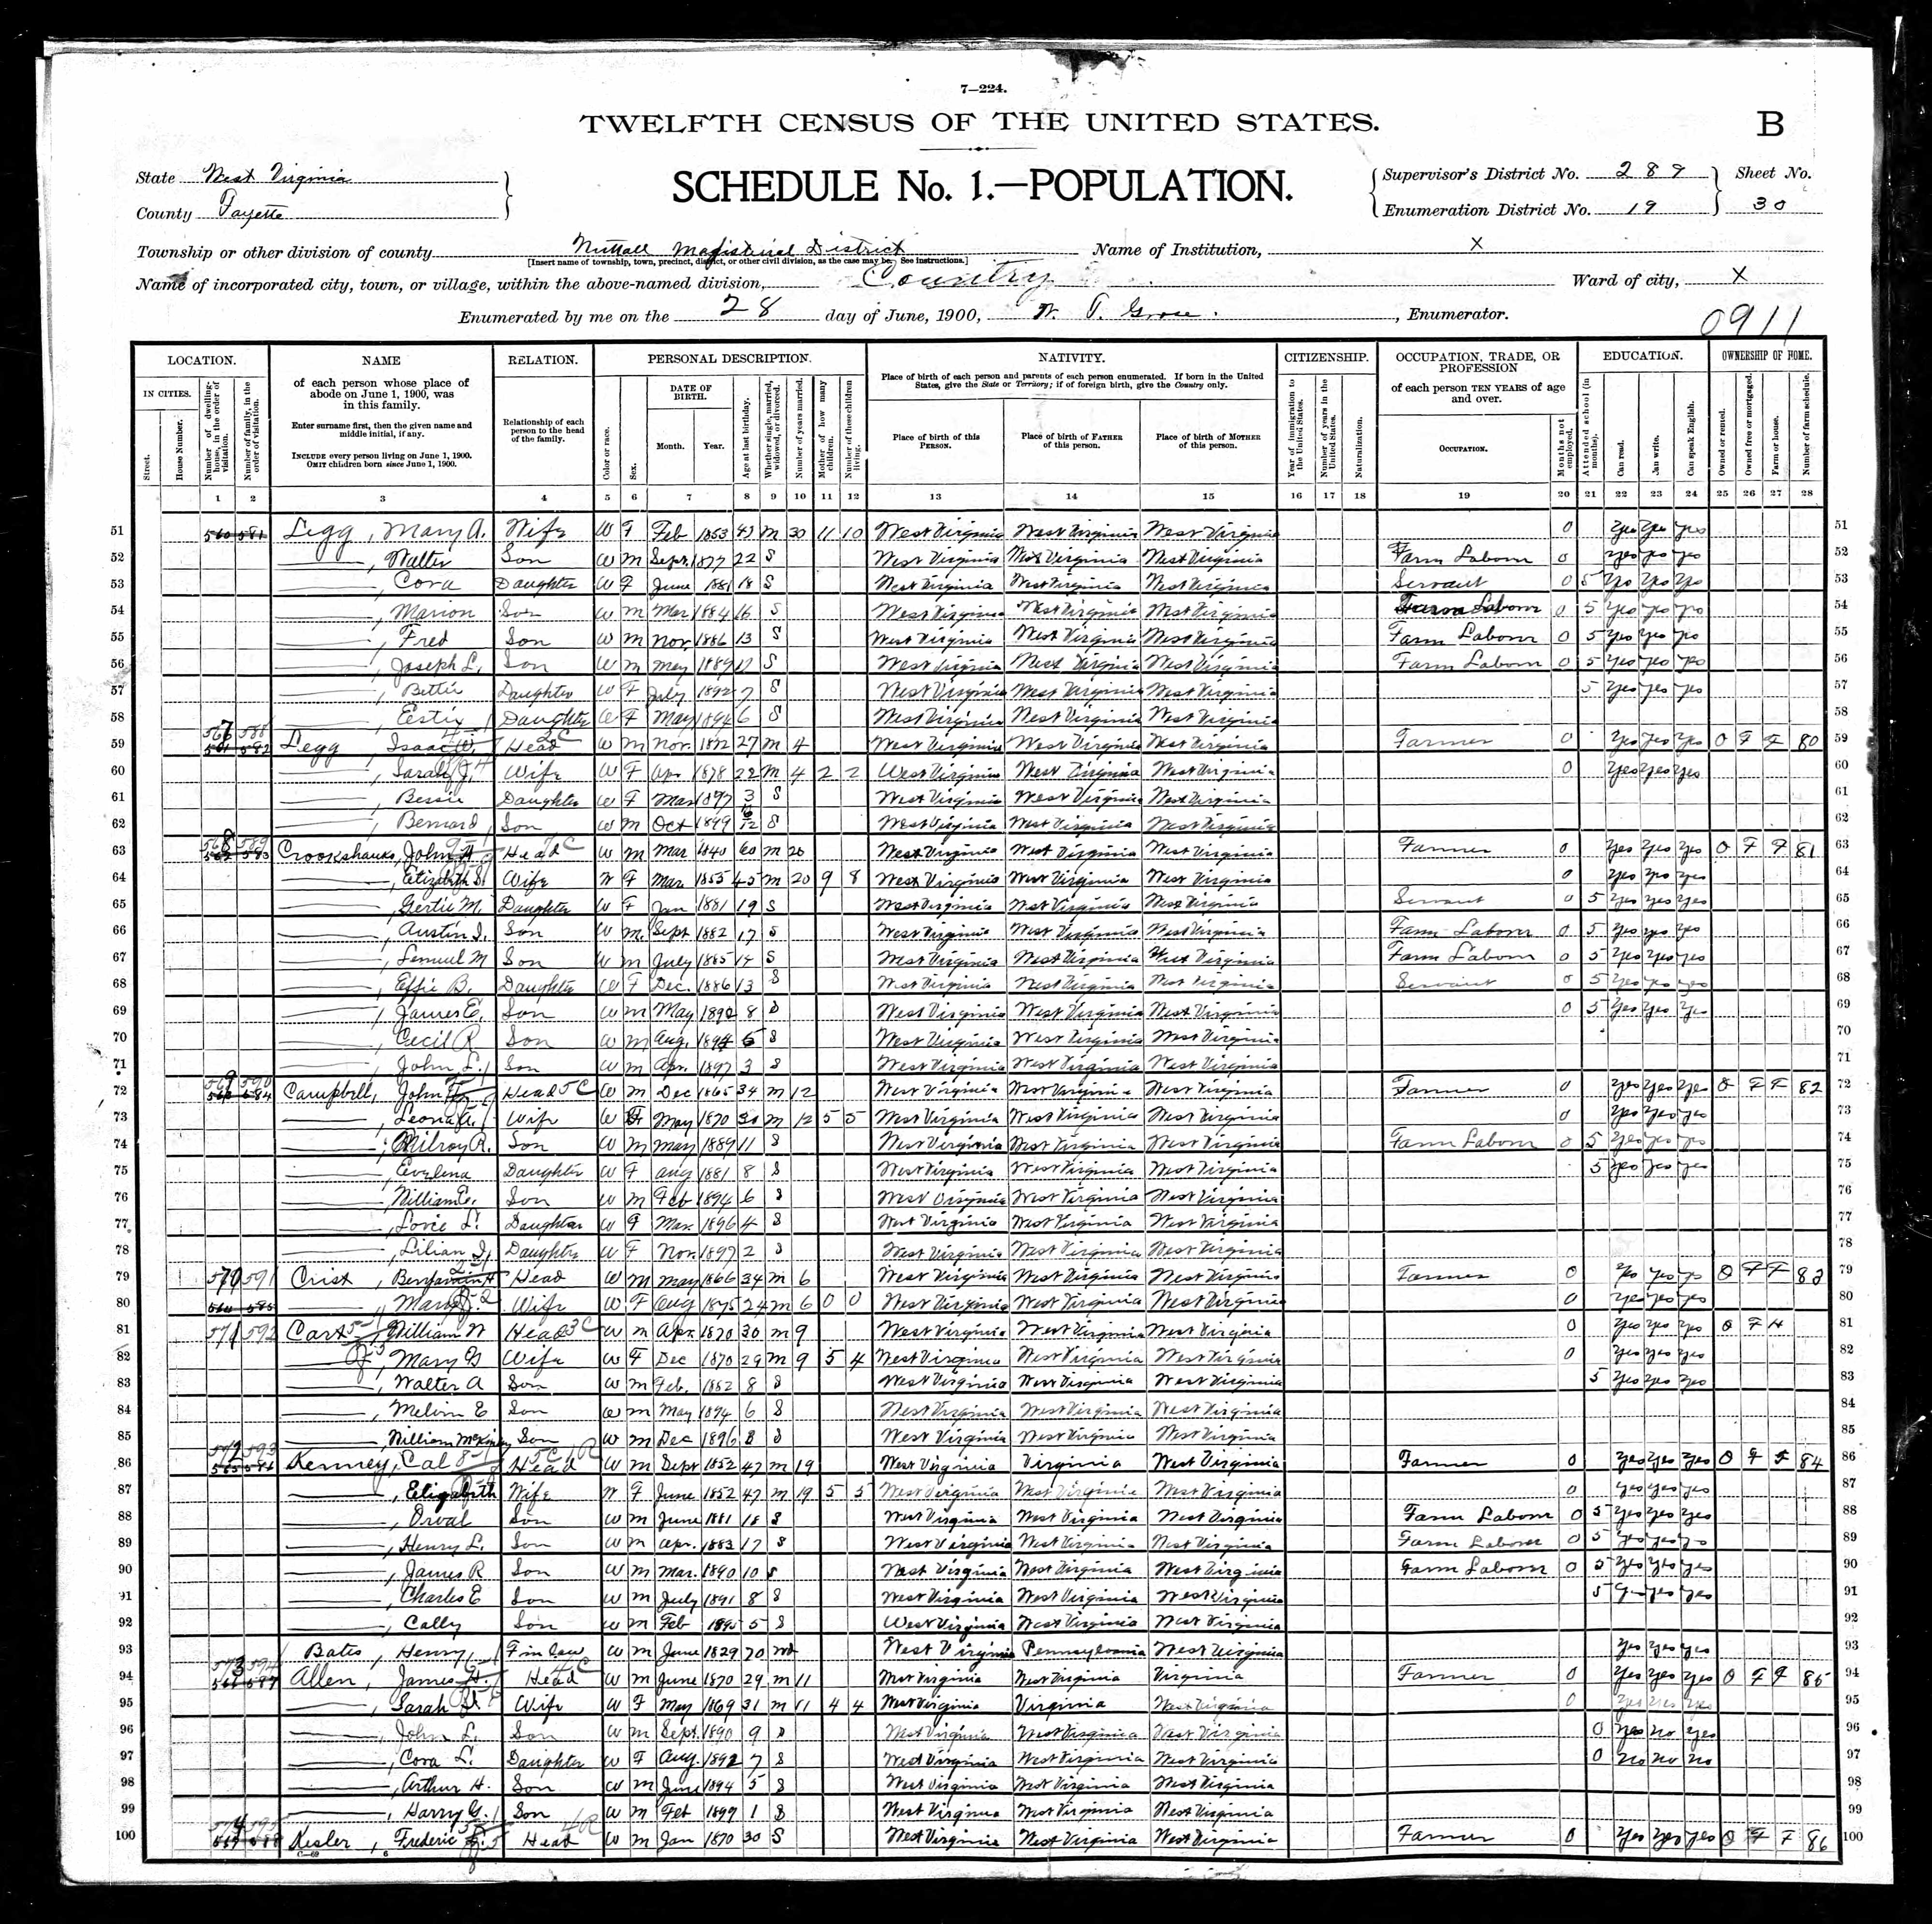 7—224.
TWELFTH CENSUS OF THE UNITED STATES.
B
State West Virginia
County Fayette
SCHEDULE No. 1.—POPULATION.
Supervisor's District No. 289
Enumeration District No. 19
Sheet No.
30
Township or other division of county Nuttall Magisterial District
[Insert name of township, town, precinct, district, or other civil division, as the case may be. See instructions.]
Name of Institution, X
Name of incorporated city, town, or village, within the above-named division, Country
Ward of city, X
Enumerated by me on the 28 day of June, 1900, W. T. Grose, Enumerator.
0911
LOCATION. NAME RELATION. PERSONAL DESCRIPTION. NATIVITY. CITIZENSHIP. OCCUPATION, TRADE, OR PROFESSION EDUCATION. OWNERSHIP OF HOME.
IN CITIES. Street. House Number.
Number of dwelling-house, in the order of visitation.
Number of family, in the order of visitation.
of each person whose place of abode on June 1, 1900, was in this family.
Enter surname first, then the given name and middle initial, if any.
INCLUDE every person living on June 1, 1900.
OMIT children born since June 1, 1900.
Relationship of each person to the head of the family.
Color or race. Sex. DATE OF BIRTH. Month. Year. Age at last birthday. Whether single, married, widowed, or divorced. Number of years married. Mother of how many children. Number of these children living.
Place of birth of each person and parents of each person enumerated. If born in the United States, give the State or Territory; if of foreign birth, give the Country only.
Place of birth of this PERSON. Place of birth of FATHER of this person. Place of birth of MOTHER of this person.
Year of immigration to the United States. Number of years in the United States. Naturalization.
of each person TEN YEARS of age and over.
OCCUPATION. Months not employed.
Attended school (in months). Can read. Can write. Can speak English.
Owned or rented. Owned free or mortgaged. Farm or house. Number of farm schedule.
1 2 3 4 5 6 7 8 9 10 11 12 13 14 15 16 17 18 19 20 21 22 23 24 25 26 27 28
51 Legg, Mary A. Wife W F Feb 1853 47 M 30 11 10 West Virginia West Virginia West Virginia 0 yes yes yes 51
52 , Walter Son W M Sept 1877 22 S West Virginia West Virginia West Virginia Farm Laborer 0 yes yes yes 52
53 , Cora Daughter W F June 1881 18 S West Virginia West Virginia West Virginia Servant 0 5 yes yes yes 53
54 , Marion Son W M Mar 1884 16 S West Virginia West Virginia West Virginia Farm Laborer 0 5 yes yes yes 54
55 , Fred Son W M Nov. 1886 13 S West Virginia West Virginia West Virginia Farm Laborer 0 5 yes yes yes 55
56 , Joseph L. Son W M May 1889 S West Virginia West Virginia West Virginia Farm Laborer 0 5 yes yes yes 56
57 , Bettie Daughter W F July 1892 7 S West Virginia West Virginia West Virginia 5 yes yes yes 57
58 , Daughter W F May 1894 6 S West Virginia West Virginia West Virginia 58
59 567 588 Legg, Isaac W. Head W M Nov. 1872 27 M 4 West Virginia West Virginia West Virginia Farmer 0 yes yes yes O F F 80 59
60 , Sarah J. Wife W F Apr 1878 22 M 4 2 2 West Virginia West Virginia West Virginia 0 yes yes yes 60
61 , Bessie Daughter W F Mar 1897 3 S West Virginia West Virginia West Virginia 61
62 , Bernard Son W M Oct 1899 S West Virginia West Virginia West Virginia 62
63 568 589 Crookshanks, John A Head W M Mar 1840 60 M 20 West Virginia West Virginia West Virginia Farmer 0 yes yes yes O F F 81 63
64 , Elizabeth S. Wife W F Mar 1855 45 M 20 9 8 West Virginia West Virginia West Virginia 0 yes yes yes 64
65 , Gertie M. Daughter W F Jan 1881 19 S West Virginia West Virginia West Virginia Servant 0 5 yes yes yes 65
66 , Austin I. Son W M Sept 1882 17 S West Virginia West Virginia West Virginia Farm Laborer 0 5 yes yes yes 66
67 , Lemuel M Son W M July 1885 14 S West Virginia West Virginia West Virginia Farm Laborer 0 5 yes yes yes 67
68 , Effie B. Daughter W F Dec. 1886 13 S West Virginia West Virginia West Virginia Servant 0 5 yes yes yes 68
69 , James E. Son W M May 1892 8 S West Virginia West Virginia West Virginia 0 5 yes yes yes 69
70 , Cecil R Son W M Aug. 1894 5 S West Virginia West Virginia West Virginia 70
71 , John L. Son W M Apr. 1897 3 S West Virginia West Virginia West Virginia 71
72 569 590 Campbell, John Head W M Dec 1865 34 M 12 West Virginia West Virginia West Virginia Farmer 0 yes yes yes O F F 82 72
73 , Leona A. Wife W F May 1870 30 M 12 5 5 West Virginia West Virginia West Virginia 0 yes yes yes 73
74 , Milroy R. Son W M May 1889 11 S West Virginia West Virginia West Virginia Farm Laborer 0 5 yes yes yes 74
75 , Evelena Daughter W F Aug 1881 8 S West Virginia West Virginia West Virginia 5 yes yes yes 75
76 , William Son W M Feb 1894 6 S West Virginia West Virginia West Virginia 76
77 , Lovie L. Daughter W F Mar. 1896 4 S West Virginia West Virginia West Virginia 77
78 , Lilian I. Daughter W F Nov. 1897 2 S West Virginia West Virginia West Virginia 78
79 570 591 Crist, Benjamin H Head W M May 1866 34 M 6 West Virginia West Virginia West Virginia Farmer 0 yes yes yes O F F 83 79
80 , Mary Wife W F Aug 1875 24 M 6 0 0 West Virginia West Virginia West Virginia 0 yes yes yes 80
81 571 592 Cart, William W Head W M Apr. 1870 30 M 9 West Virginia West Virginia West Virginia 0 yes yes yes O F H 81
82 , Mary G Wife W F Dec 1870 29 M 9 5 4 West Virginia West Virginia West Virginia 0 yes yes yes 82
83 , Walter A Son W M Feb. 8 S West Virginia West Virginia West Virginia 5 yes yes yes 83
84 , Melvin E Son W M May 1894 6 S West Virginia West Virginia West Virginia 84
85 , William McKinley Son W M Dec 1896 S West Virginia West Virginia West Virginia 85
86 572 593 Kenney, Cal Head W M Sept 1852 47 M 19 West Virginia Virginia West Virginia Farmer 0 yes yes yes O F F 84 86
87 , Elizabeth Wife W F June 1852 47 M 19 5 5 West Virginia West Virginia West Virginia 0 yes yes yes 87
88 , Orval Son W M June 1881 18 S West Virginia West Virginia West Virginia Farm Laborer 0 5 yes yes yes 88
89 , Henry L. Son W M Apr. 1883 17 S West Virginia West Virginia West Virginia Farm Laborer 0 5 yes yes yes 89
90 , James R Son W M Mar. 1890 10 S West Virginia West Virginia West Virginia Farm Laborer 0 5 yes yes yes 90
91 , Charles E Son W M July 1891 8 S West Virginia West Virginia West Virginia 5 yes yes yes 91
92 , Cally Son W M Feb 1895 5 S West Virginia West Virginia West Virginia 92
93 Bates, Henry F in law W M June 1829 70 Wd West Virginia Pennsylvania West Virginia yes yes yes 93
94 573 594 Allen, James H. Head W M June 1870 29 M 11 West Virginia West Virginia Virginia Farmer 0 yes yes yes O F F 85 94
95 , Sarah Wife W F May 1869 31 M 11 4 4 West Virginia Virginia West Virginia 0 yes yes yes 95
96 , John L. Son W M Sept. 1890 9 S West Virginia West Virginia West Virginia 0 yes no yes 96
97 , Cora L. Daughter W F Aug. 1892 7 S West Virginia West Virginia West Virginia 0 no no no 97
98 , Arthur H. Son W M June 1894 5 S West Virginia West Virginia West Virginia 98
99 , Harry G. Son W M Feb 1899 1 S West Virginia West Virginia West Virginia 99
100 574 595 Kesler, Frederic Head W M Jan 1870 30 S West Virginia West Virginia West Virginia Farmer 0 yes yes yes O F F 86 100